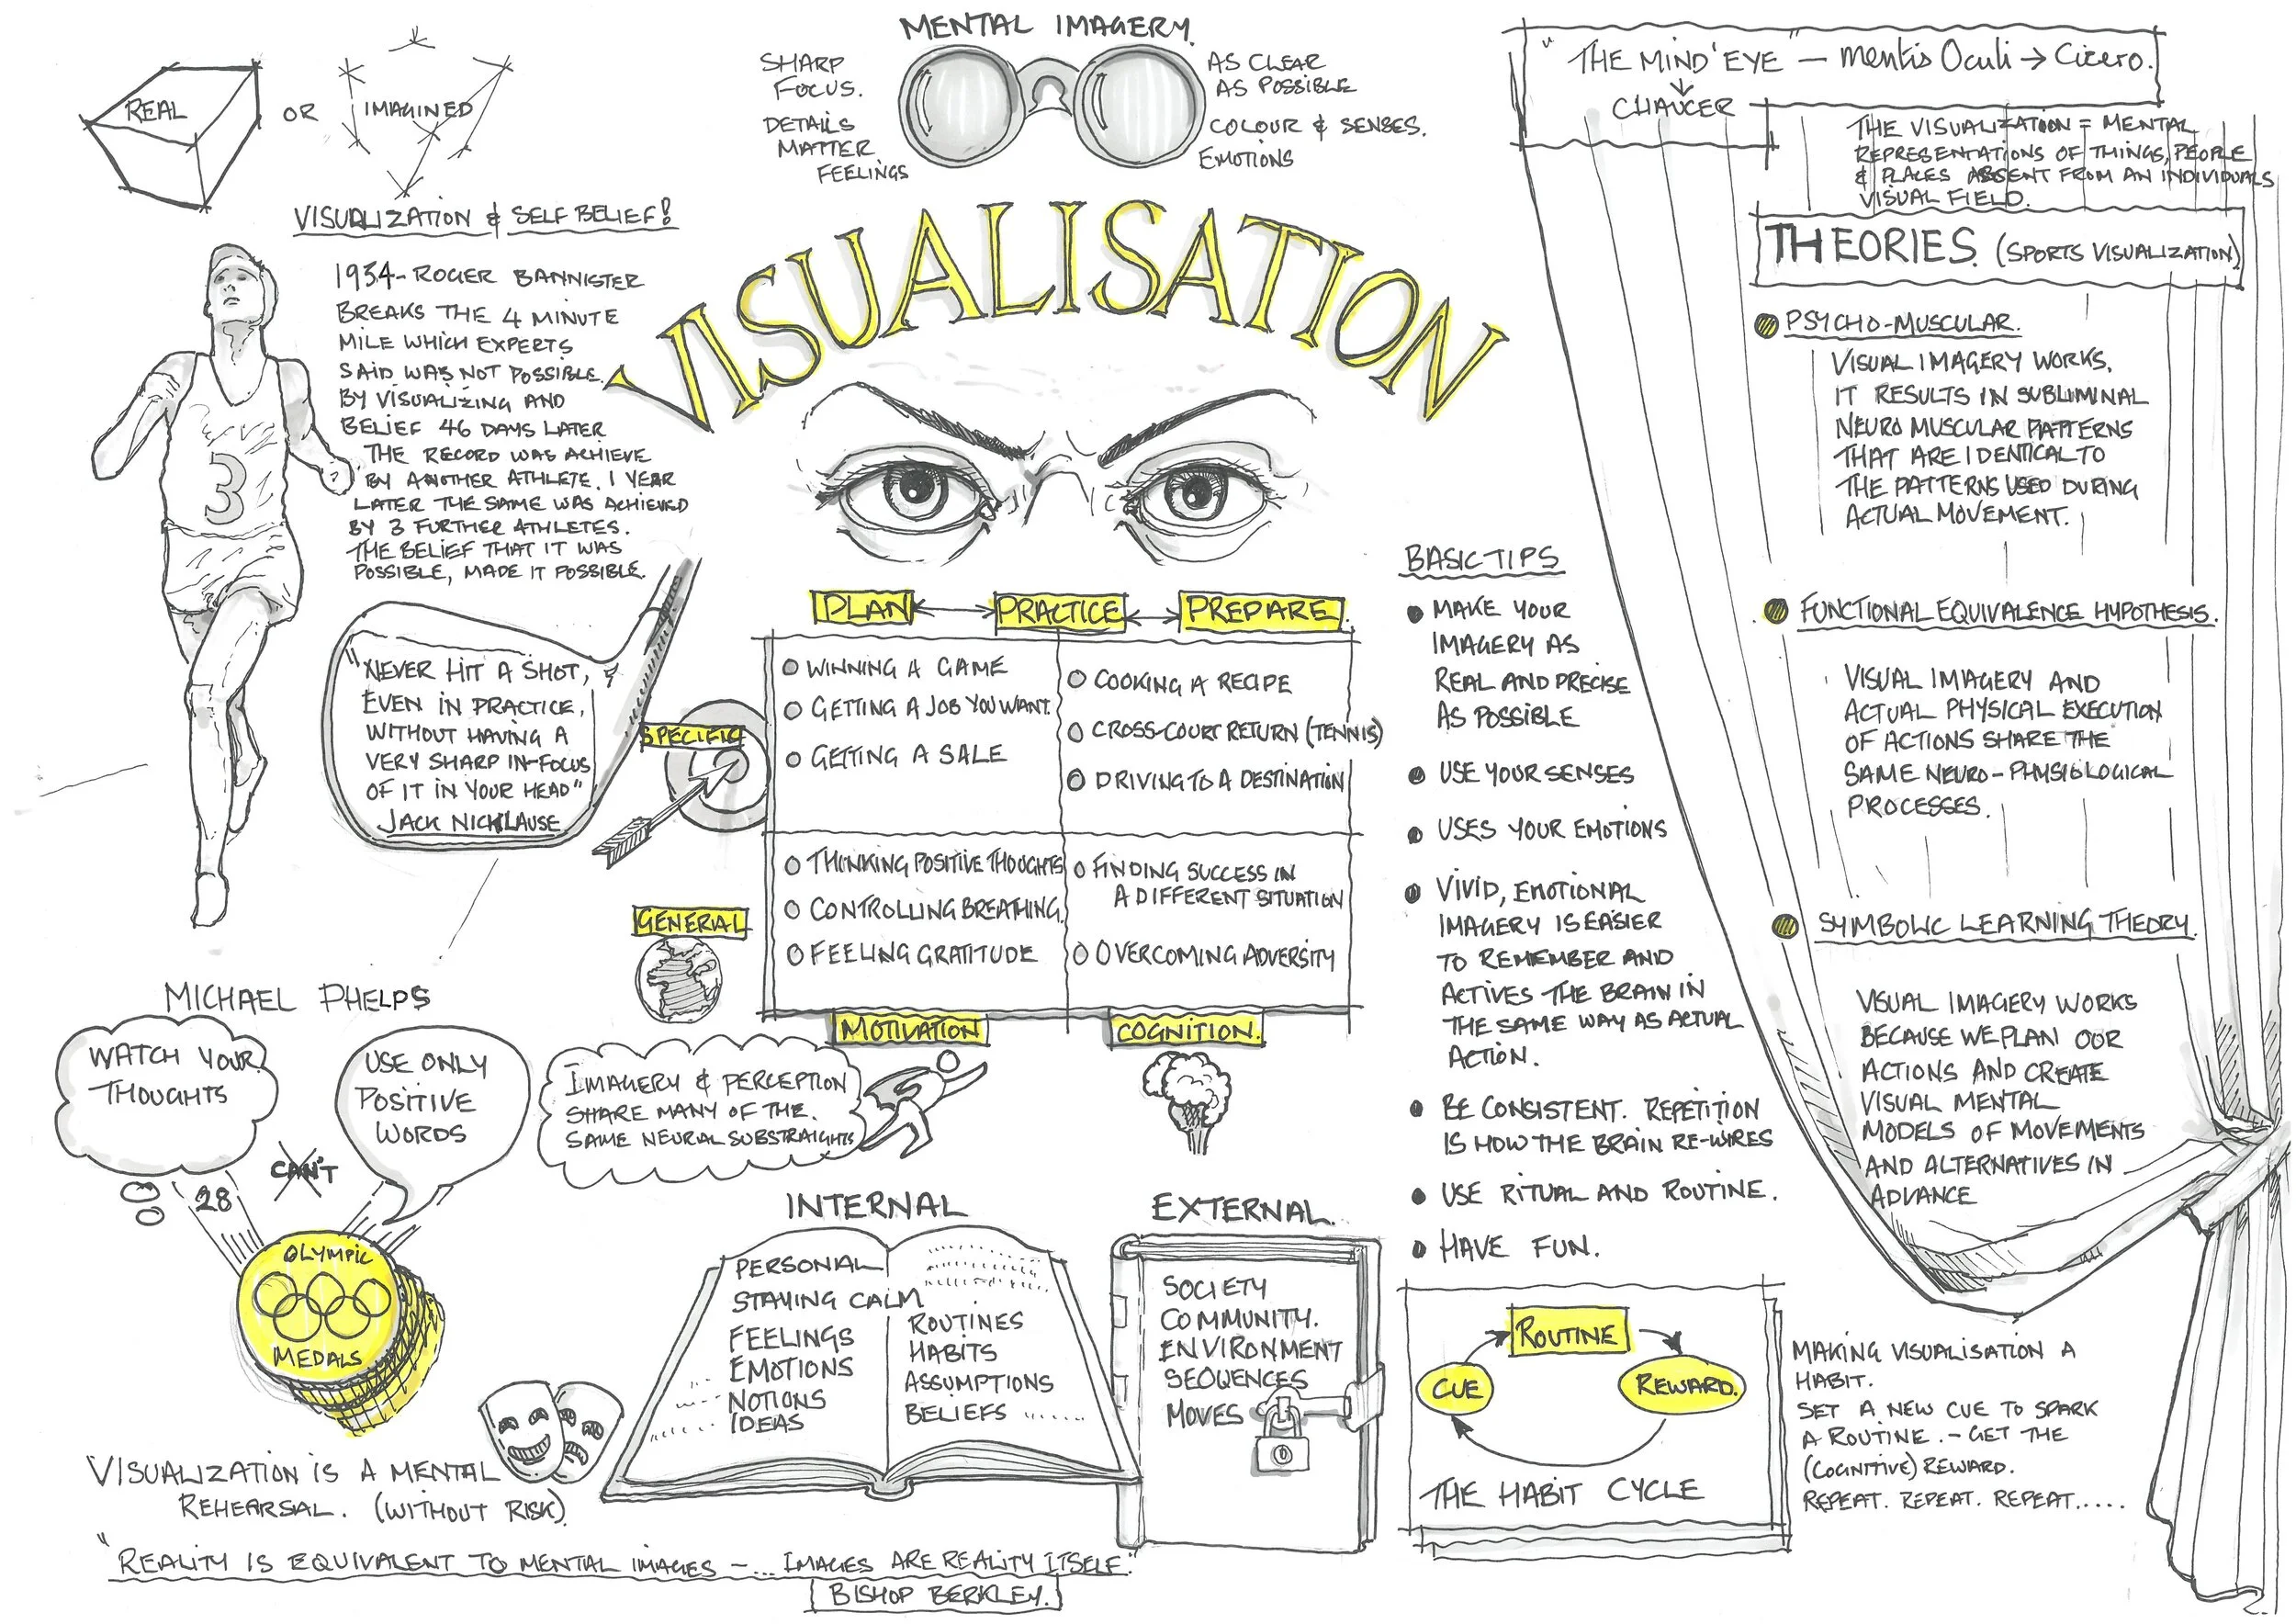 MENTAL IMAGERY.
SHARP
FOCUS.
DETAILS
MATTER
FEELINGS
AS CLEAR
AS POSSIBLE
COLOUR & SENSES.
EMOTIONS
REAL
OR
IMAGINED
VISUALIZATION & SELF BELIEF!
1954 - ROGER BANNISTER
BREAKS THE 4 MINUTE
MILE WHICH EXPERTS
SAID WAS NOT POSSIBLE.
BY VISUALIZING AND
BELIEF 46 DAYS LATER
THE RECORD WAS ACHIEVE
BY ANOTHER ATHLETE. 1 YEAR
LATER THE SAME WAS ACHIEVED
BY 3 FURTHER ATHLETES.
THE BELIEF THAT IT WAS
POSSIBLE, MADE IT POSSIBLE.
3
"NEVER HIT A SHOT,
EVEN IN PRACTICE,
WITHOUT HAVING A
VERY SHARP IN-FOCUS
OF IT IN YOUR HEAD"
JACK NICKLAUSE
VISUALISATION
PLAN
PRACTICE
PREPARE.
SPECIFIC
WINNING A GAME
GETTING A JOB YOU WANT.
GETTING A SALE
COOKING A RECIPE
CROSS-COURT RETURN (TENNIS)
DRIVING TO A DESTINATION
GENERAL
THINKING POSITIVE THOUGHTS
CONTROLLING BREATHING.
FEELING GRATITUDE
FINDING SUCCESS IN
A DIFFERENT SITUATION
OVERCOMING ADVERSITY
MOTIVATION
COGNITION.
IMAGERY & PERCEPTION
SHARE MANY OF THE.
SAME NEURAL SUBSTRAIGHTS
MICHAEL PHELPS
WATCH YOUR
THOUGHTS
USE ONLY
POSITIVE
WORDS
CAN'T
28
OLYMPIC
MEDALS
VISUALIZATION IS A MENTAL
REHEARSAL. (WITHOUT RISK)
"REALITY IS EQUIVALENT TO MENTAL IMAGES - ... IMAGES ARE REALITY ITSELF."
BISHOP BERKLEY.
INTERNAL
PERSONAL
STAYING CALM
FEELINGS
EMOTIONS
NOTIONS
IDEAS
ROUTINES
HABITS
ASSUMPTIONS
BELIEFS
EXTERNAL.
SOCIETY
COMMUNITY.
ENVIRONMENT
SEQUENCES
MOVES
BASIC TIPS
MAKE YOUR
IMAGERY AS
REAL AND PRECISE
AS POSSIBLE
USE YOUR SENSES
USES YOUR EMOTIONS
VIVID, EMOTIONAL
IMAGERY IS EASIER
TO REMEMBER AND
ACTIVES THE BRAIN IN
THE SAME WAY AS ACTUAL
ACTION.
BE CONSISTENT. REPETITION
IS HOW THE BRAIN RE-WIRES
USE RITUAL AND ROUTINE.
HAVE FUN.
CUE
ROUTINE
REWARD.
THE HABIT CYCLE
MAKING VISUALISATION A
HABIT.
SET A NEW CUE TO SPARK
A ROUTINE. - GET THE
(COGNITIVE) REWARD.
REPEAT. REPEAT. REPEAT.....
"THE MIND'EYE" - mentis Oculi → Cicero.
CHAUCER
THE VISUALIZATION = MENTAL
REPRESENTATIONS OF THINGS, PEOPLE
& PLACES ABSENT FROM AN INDIVIDUALS
VISUAL FIELD.
THEORIES. (SPORTS VISUALIZATION)
PSYCHO-MUSCULAR.
VISUAL IMAGERY WORKS.
IT RESULTS IN SUBLIMINAL
NEURO MUSCULAR PATTERNS
THAT ARE IDENTICAL TO
THE PATTERNS USED DURING
ACTUAL MOVEMENT.
FUNCTIONAL EQUIVALENCE HYPOTHESIS.
VISUAL IMAGERY AND
ACTUAL PHYSICAL EXECUTION
OF ACTIONS SHARE THE
SAME NEURO-PHYSIOLOGICAL
PROCESSES.
SYMBOLIC LEARNING THEORY.
VISUAL IMAGERY WORKS
BECAUSE WE PLAN OUR
ACTIONS AND CREATE
VISUAL MENTAL
MODELS OF MOVEMENTS
AND ALTERNATIVES IN
ADVANCE